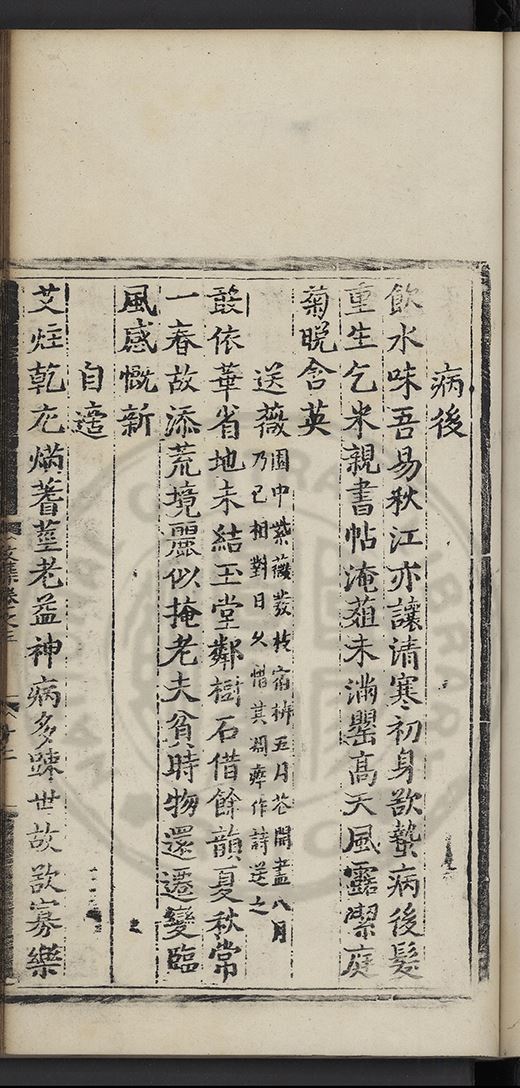 病後
飲水味吾易秋江亦讓清寒初身欲蟄病後髮
重生乞米親書帖淹葅未滿罌高天風露潔庭
菊晚含英
送薇園中紫薇數枝宿枿五月花開盡八月
乃已相對日久惜其凋瘁作詩送之
敢依華省地未結玉堂鄰樹石借餘韻夏秋常
一春故添荒境麗似掩老夫貧時物還遷變臨
風感慨新
自遣
艾炷乾充熵蓍莖老益神病多踈世故欲寡樂
文集卷之三